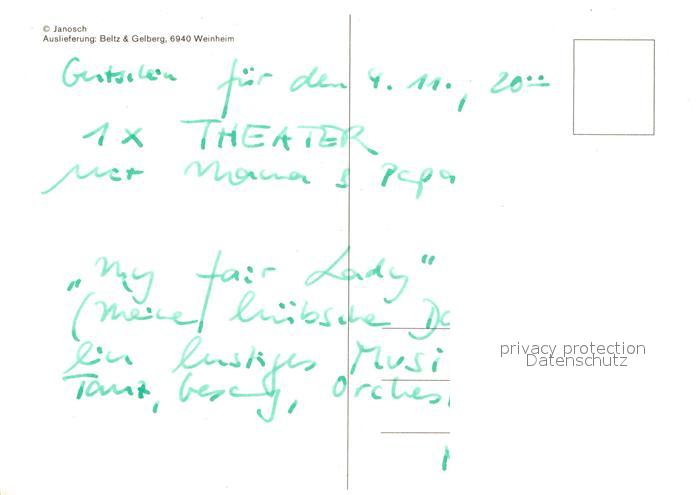 © Janosch
Auslieferung: Beltz & Gelberg, 6940 Weinheim
Gutschein für den 4. 11., 20⁰⁰
1 x THEATER
mit Mama & Papa
„My fair Lady“
(meine hübsche Da
Ein lustiges Musi
Tanz, Gesang, Orchest
privacy protection
Datenschutz